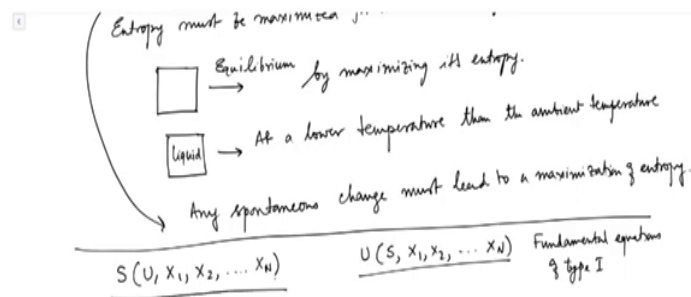 Entropy must be maximized
Equilibrium by maximizing its entropy.
liquid
At a lower temperature than the ambient temperature
Any spontaneous change must lead to a maximization of entropy.
S(U, X1, X2, .... XN)
U(S, X1, X2, ... XN) Fundamental equations
of type I